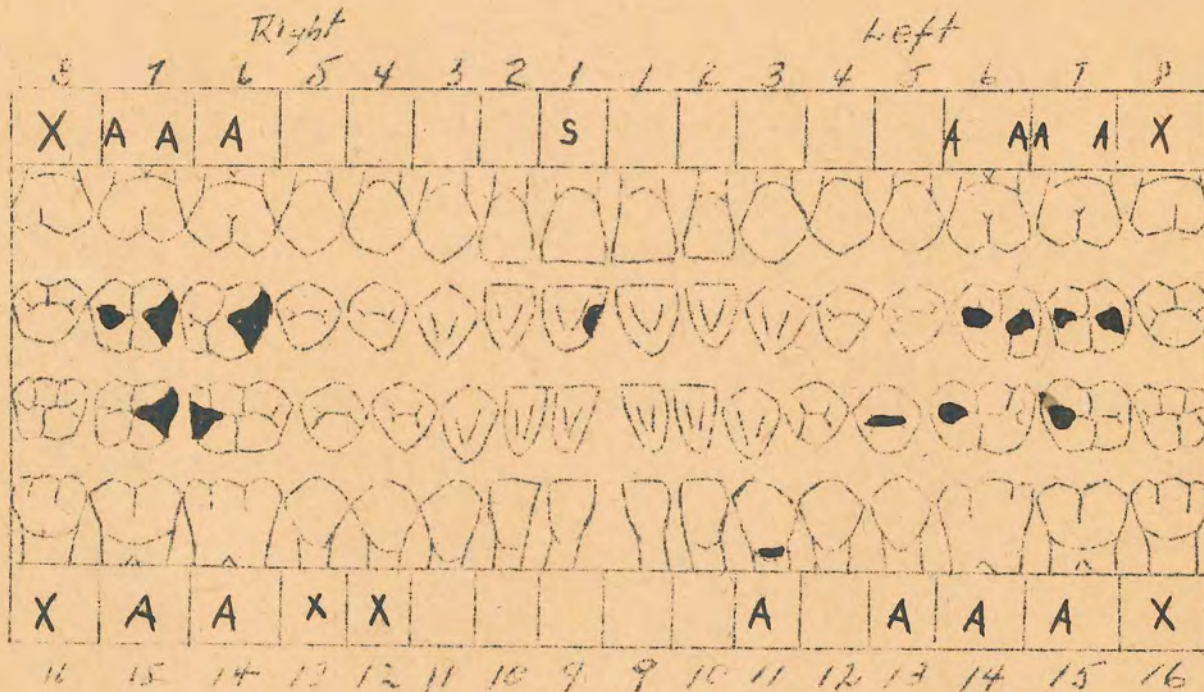 Right Left
8 7 6 5 4 3 2 1 1 2 3 4 5 6 7 8
X A A A S A A A A X
X A A X X A A A A X
16 15 14 13 12 11 10 9 9 10 11 12 13 14 15 16